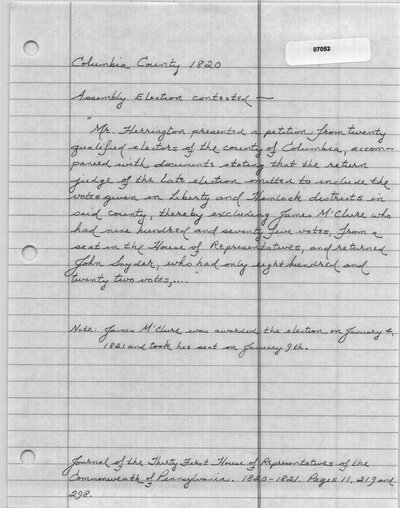 07052
Columbia County 1820
Assembly Election contested —
"Mr. Herrington presented a petition from twenty
qualified electors of the county of Columbia, accom-
panied with documents stating that the return
judge of the late election omitted to include the
votes given in Liberty and Hemlock districts in
said county, thereby excluding James McClure who
had nine hundred and seventy five votes, from a
seat in the House of Representatives, and returned
John Snyder, who had only eight hundred and
twenty two votes,...."
Note: James McClure was awarded the election on January 4,
1821 and took his seat on January 9th.
Journal of the Thirty First House of Representatives of the
Commonwealth of Pennsylvania. 1820-1821. Pages 11, 219 and
298.